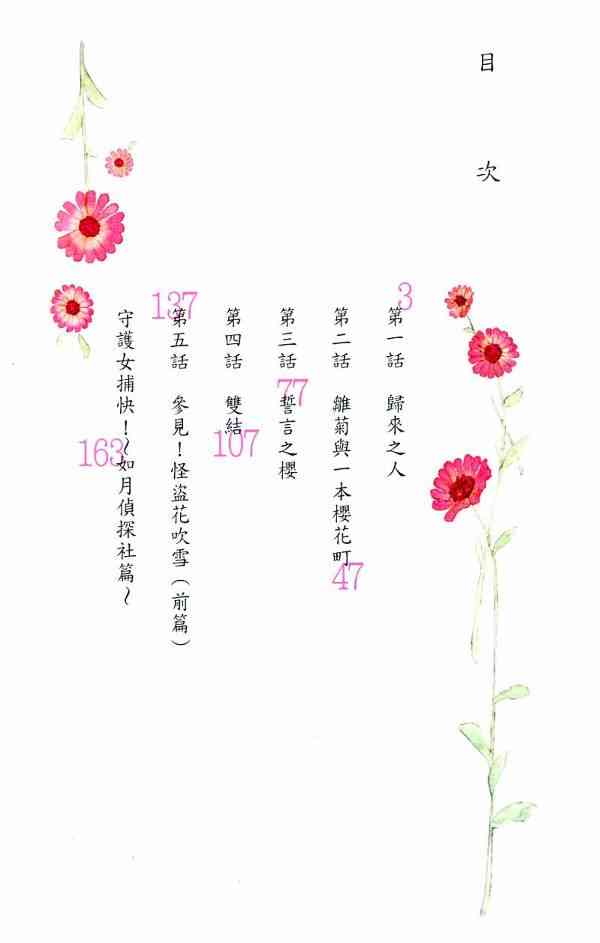 目次
3
第一話　歸來之人
第二話　雛菊與一本櫻花町
47
第三話　誓言之櫻
77
第四話　雙結
107
第五話　參見！怪盜花吹雪（前篇）
137
守護女捕快！～如月偵探社篇～
163